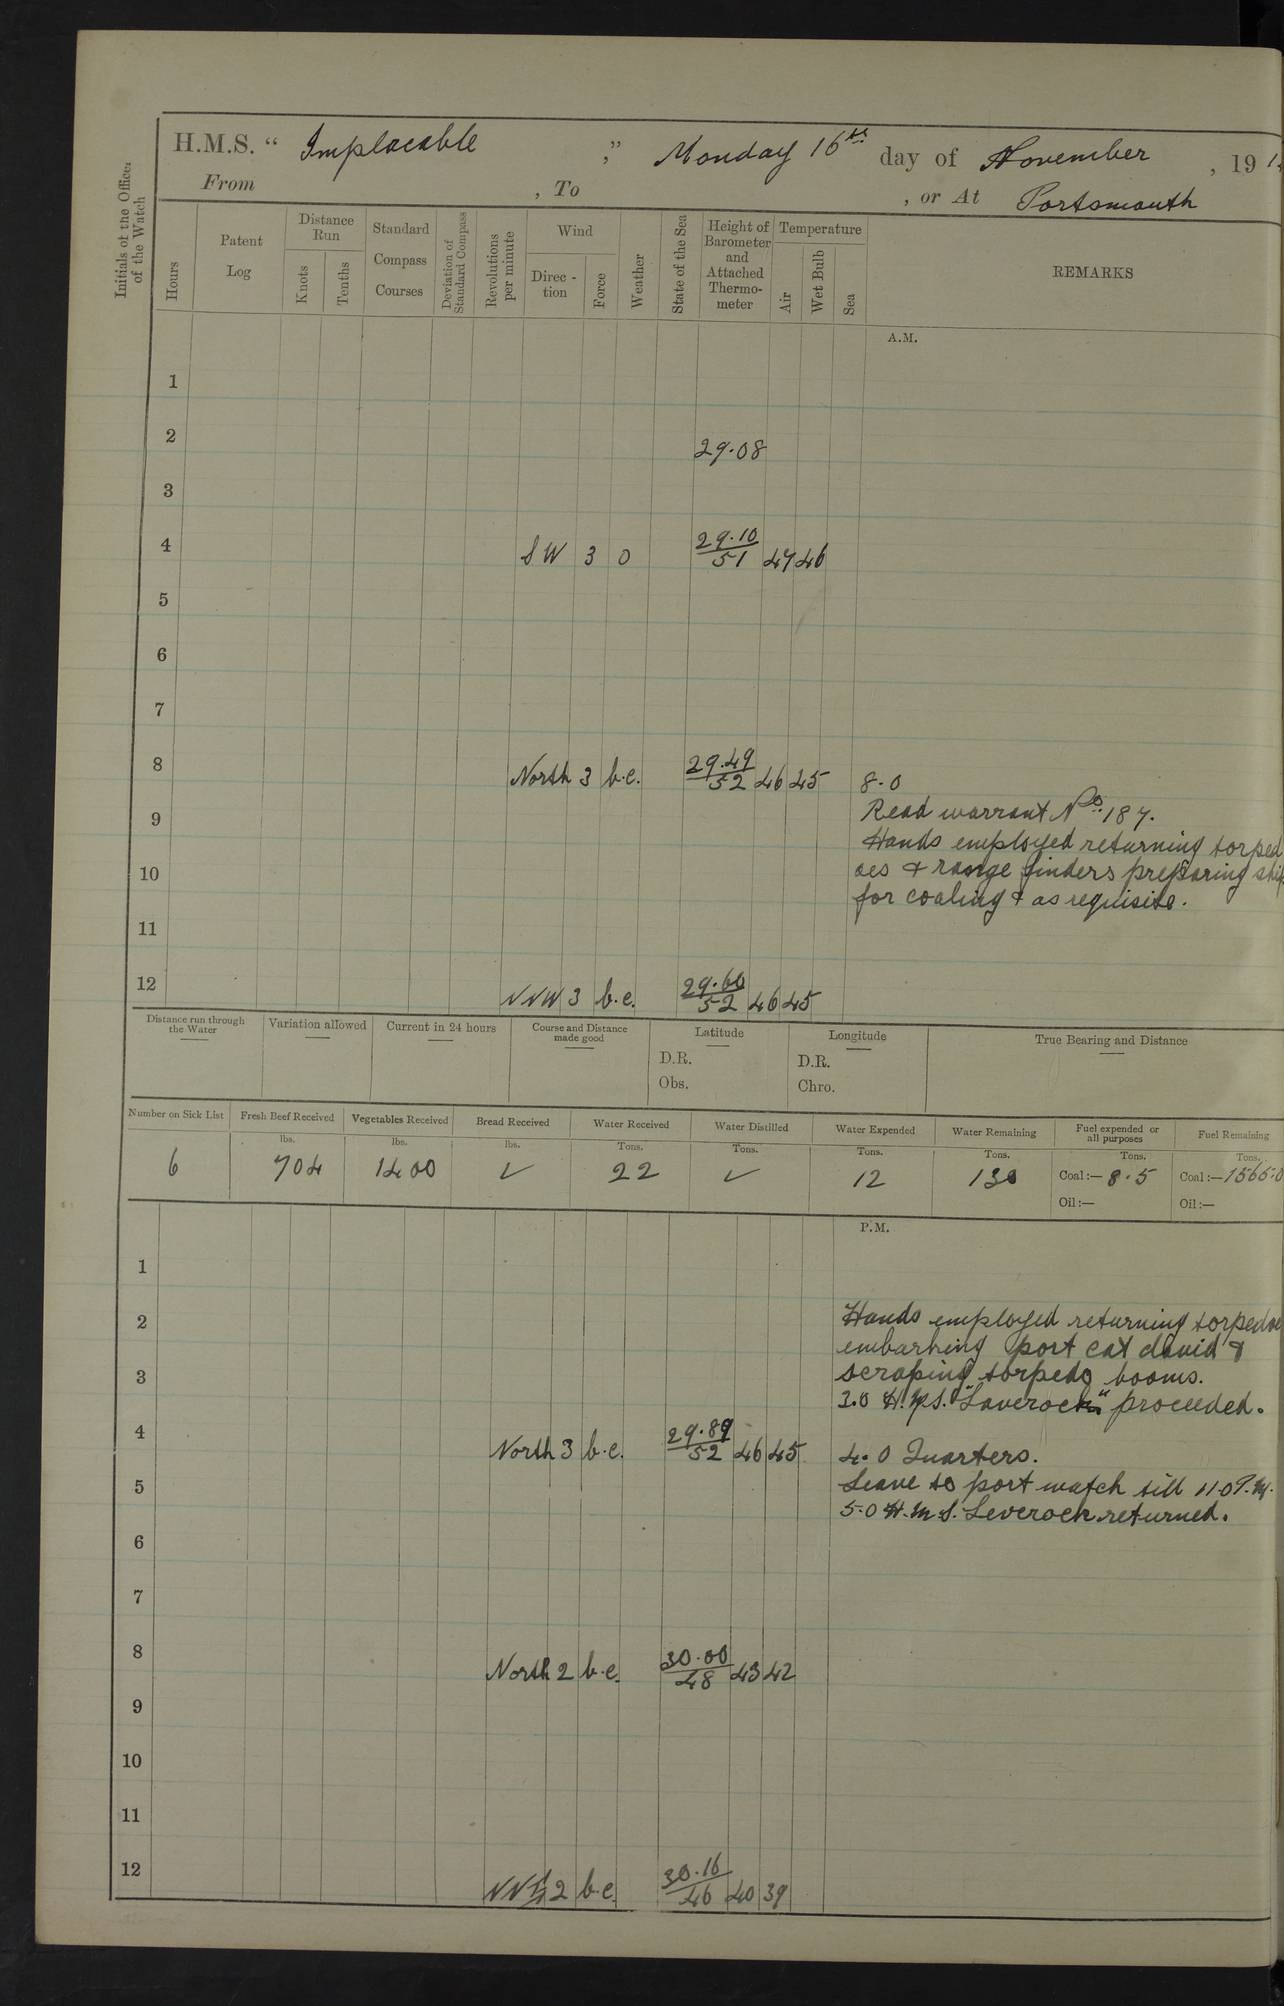 H.M.S. “ Implacable ,” Monday 16th day of November , 19 1
From , To , or At Portsmouth
Initials of the Officer of the Watch
Hours
Patent Log
Distance Run
Knots
Tenths
Standard Compass Courses
Deviation of Standard Compass
Revolutions per minute
Wind
Direc- tion
Force
Weather
State of the Sea
Height of Barometer and Attached Thermo- meter
Temperature
Air
Wet Bulb
Sea
REMARKS
A.M.
1
2 29.08
3
4 SW 3 0 29.10/51 47 46
5
6
7
8 North 3 b.c. 29.49/52 46 45 8.0
Read warrant No. 187.
9
Hands employed returning torped
10 oes & range finders preparing ship
for coaling & as requisite.
11
12 NNW 3 b.c. 29.60/52 46 45
Distance run through the Water
Variation allowed
Current in 24 hours
Course and Distance made good
Latitude
D.R.
Obs.
Longitude
D.R.
Chro.
True Bearing and Distance
Number on Sick List Fresh Beef Received Vegetables Received Bread Received Water Received Water Distilled Water Expended Water Remaining Fuel expended or all purposes Fuel Remaining
lbs. lbs. lbs. Tons. Tons. Tons. Tons. Tons. Tons.
6 704 1400 ✓ 22 ✓ 12 130 Coal:— 8.5 Coal:— 1565.0
Oil:— Oil:—
P.M.
1
2 Hands employed returning torpedoe
embarking port cat david &
3 scraping torpedo booms.
3.0 H.M.S. "Laverock" proceeded.
4 North 3 b.c. 29.89/52 46 45 4.0 Quarters.
5 Leave to port watch till 11.0 P.M.
5.0 H.M.S. Leverock returned.
6
7
8 North 2 b.c. 30.00/48 43 42
9
10
11
12 2 b.c. 30.16/46 40 39